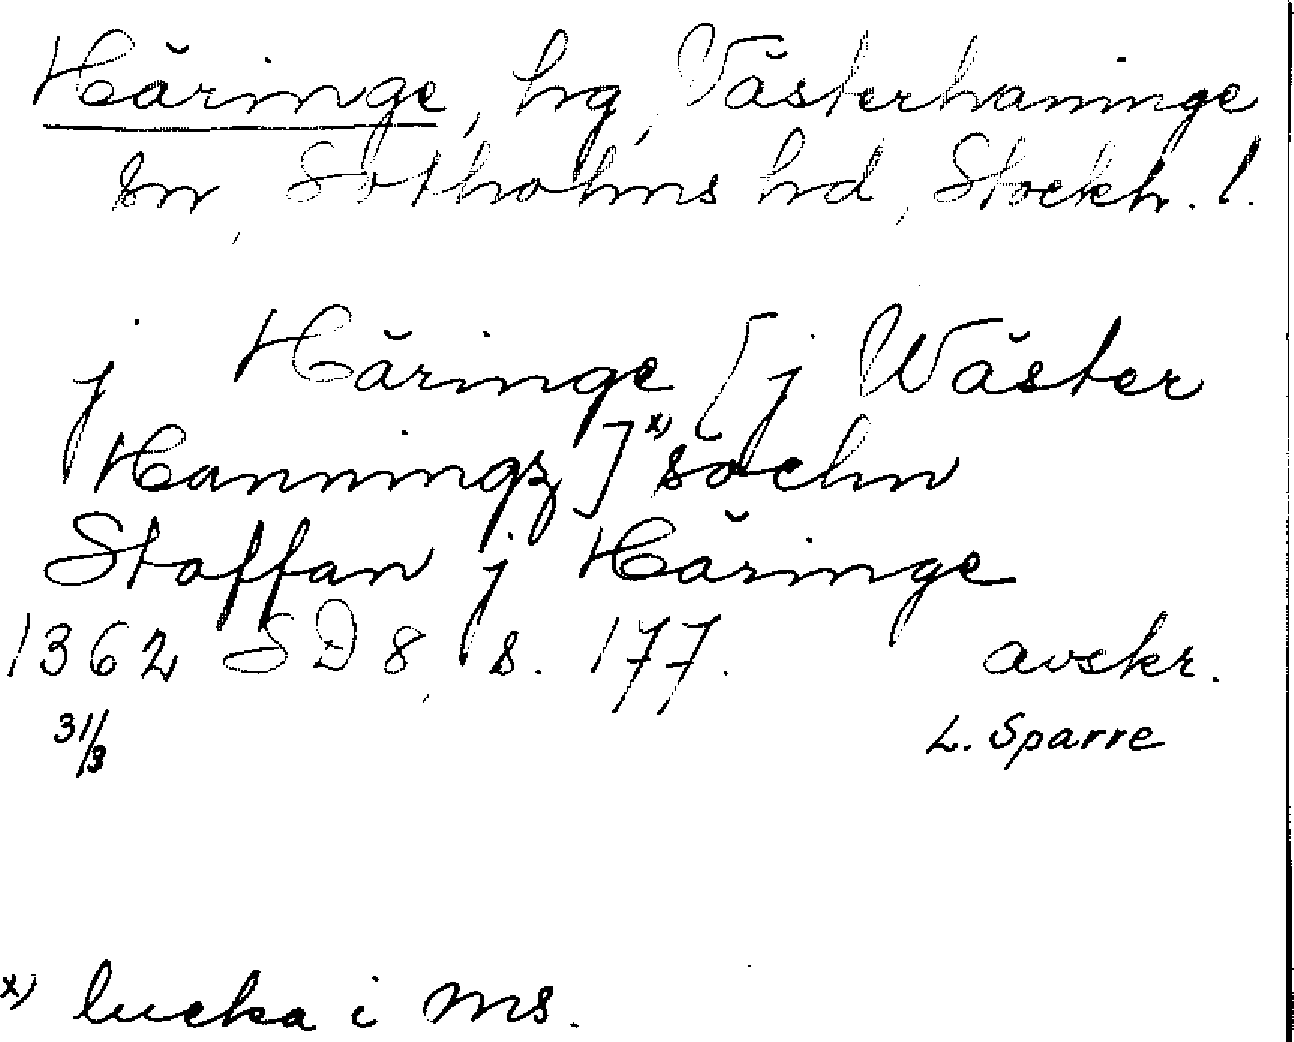 Häringe, hg, Västerhaninge
sn, Sotholms hd, Stockh. l.
j Häringe [j Wäster
Hanningz]x) sochn
Staffan j Häringe
1362 SD 8, s. 177. avskr.
31/3 L. Sparre
x) lucka i ms.